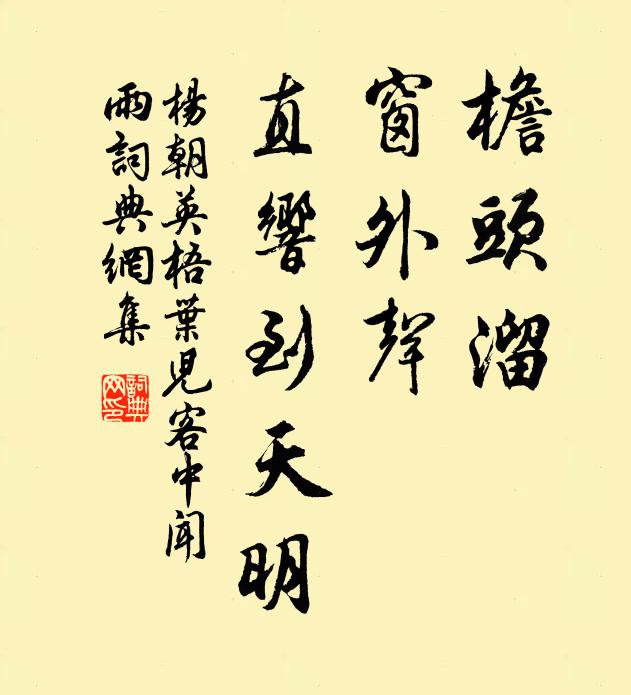 檐頭溜
窗外聲
直響到天明
楊朝英梧葉児客中聞
雨詞典網集
詞典
网印